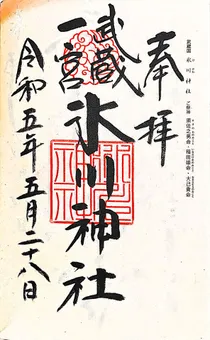 武蔵國 氷川神社 ご祭神 須佐之男命・稲田姫命・大己貴命
奉拝
武蔵
一宮
氷川神社
令和五年五月二十八日